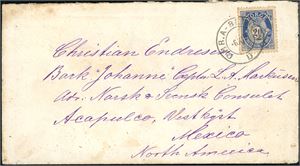 Christian Endresen
Bark "Johanne" Captn L. A. Markussen
Adr. Norsk & Svensk Consulat
Acapulco, Vestkyst
Mexico
North America